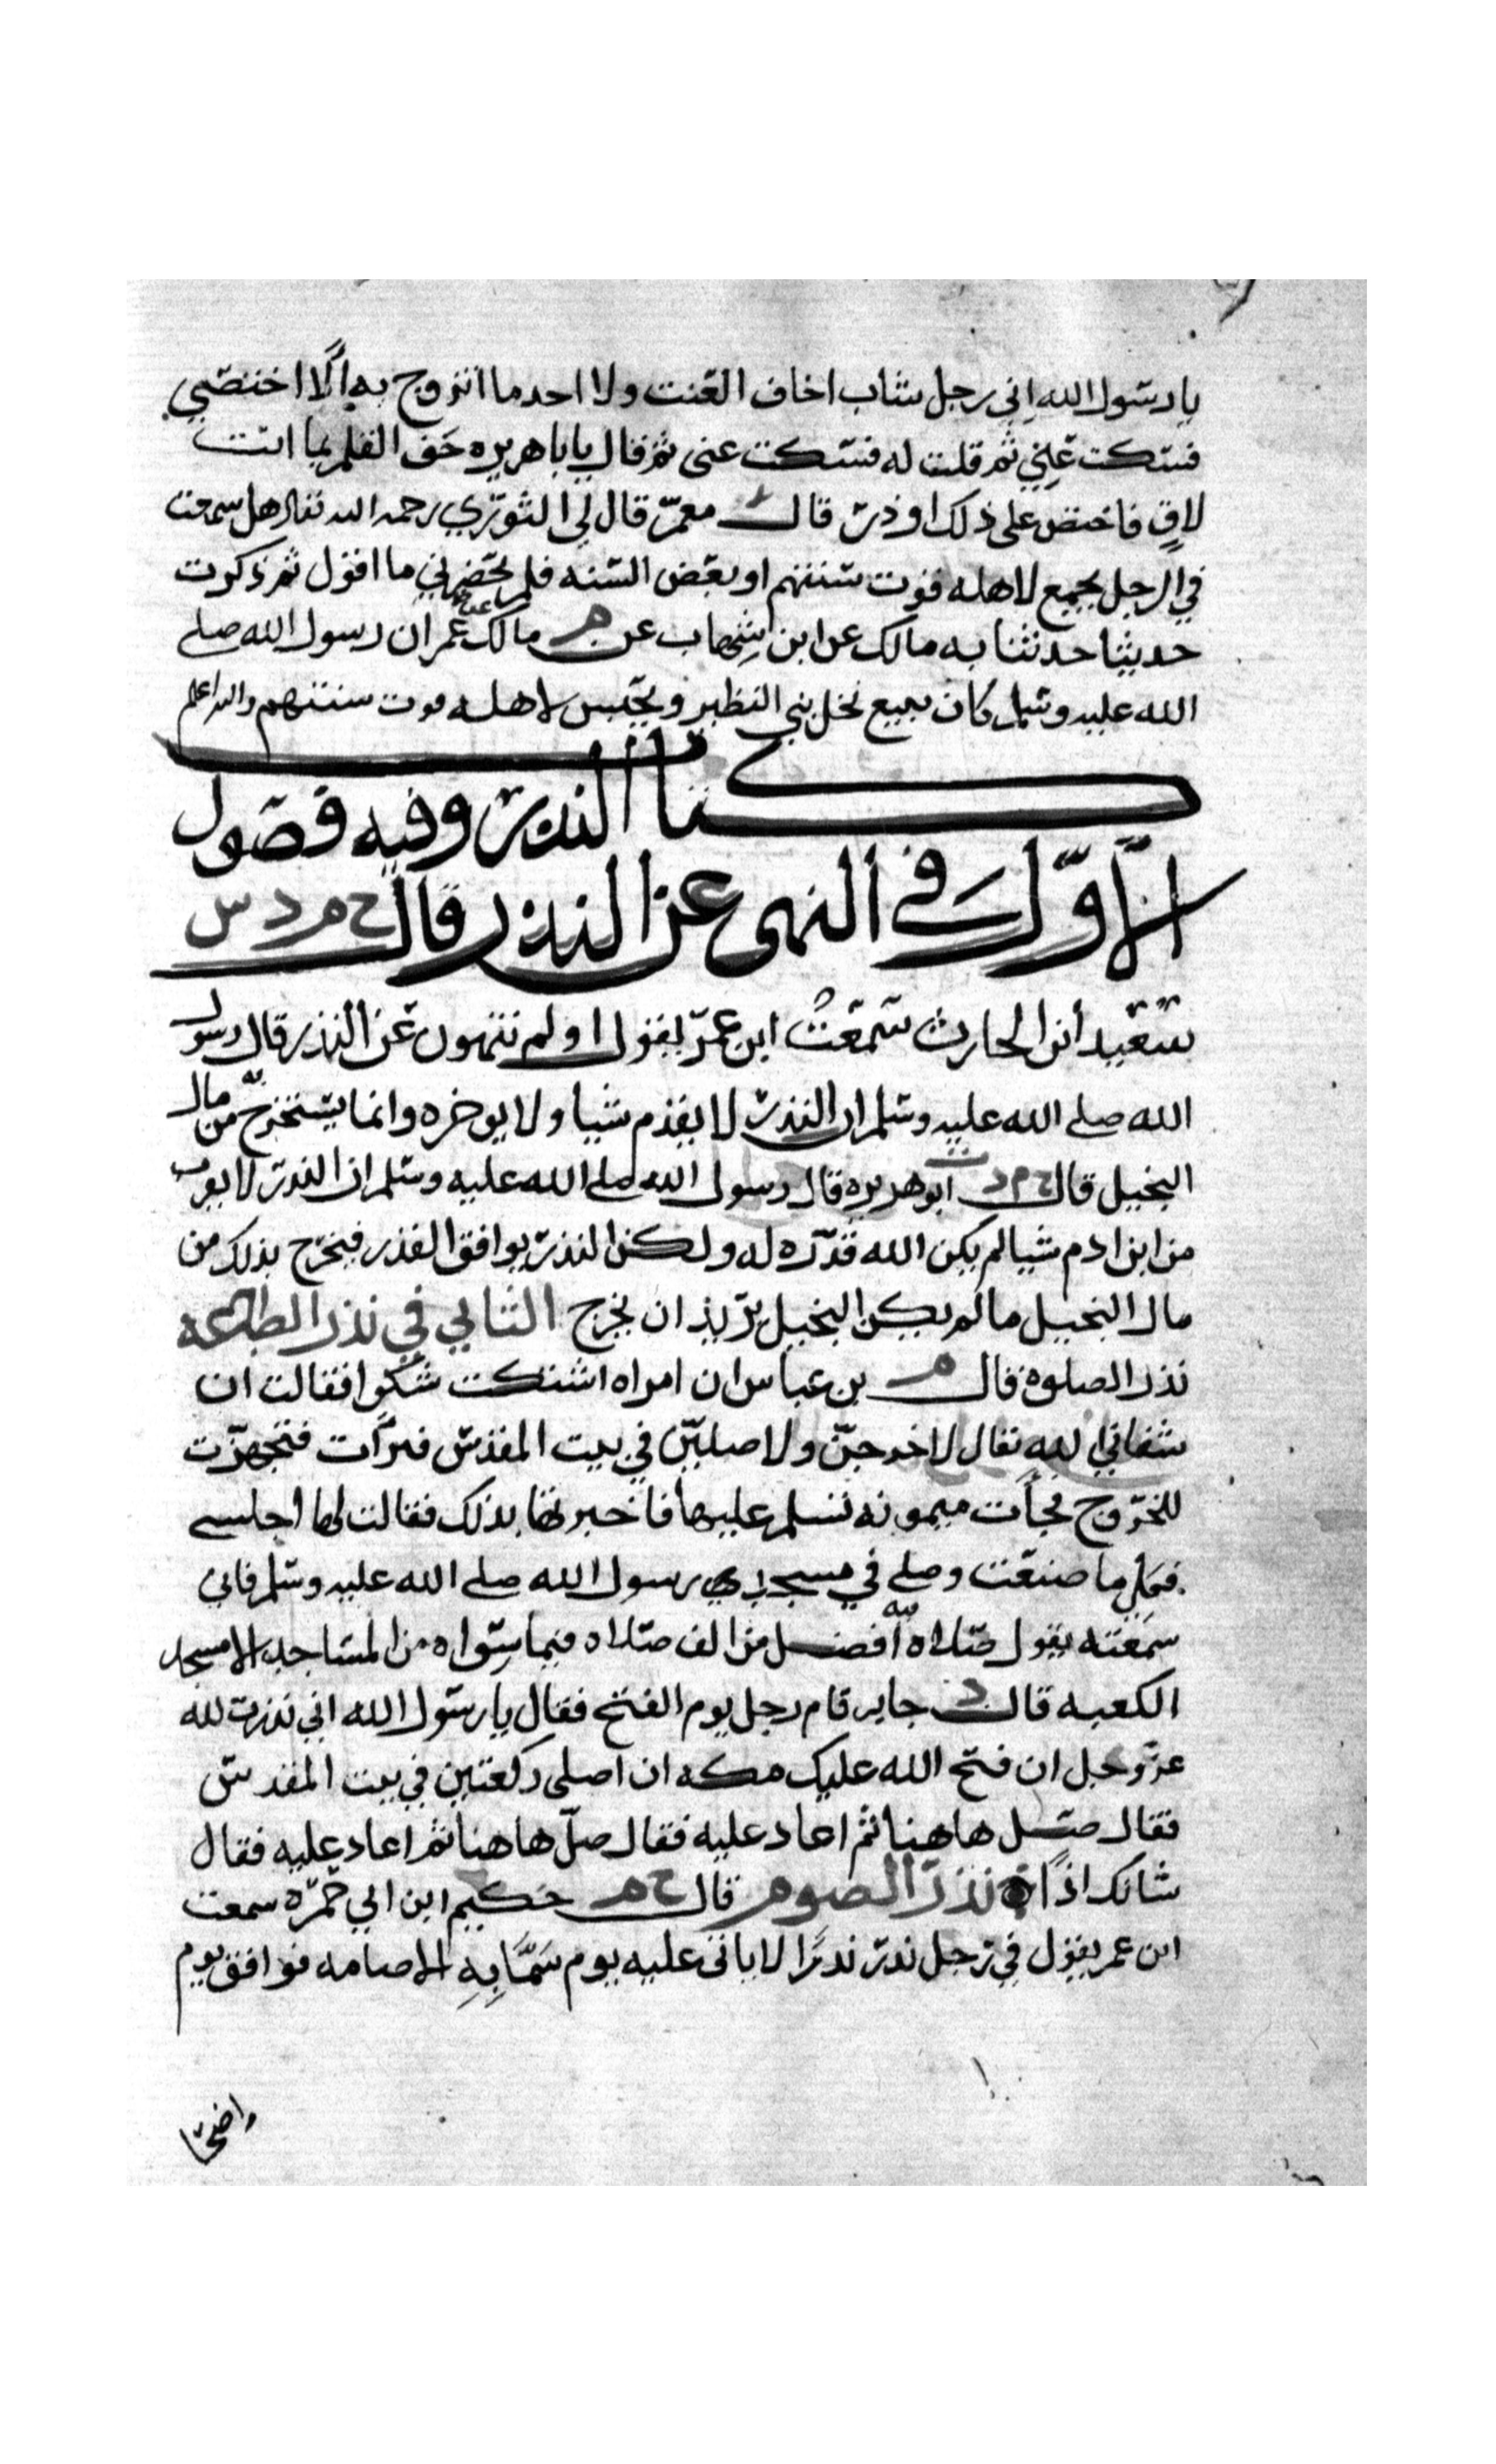 يا رسول الله اني رجل شاب اخاف العنت ولا اجد ما اتزوج به الا اختصي
فسكت عني ثم قلت له فسكت عني ثم قال يا با هريره جف القلم بما انت
لاق فاختص على ذلك او ذر قال معمر قال لي الثوري رحمه الله تعالى هل سمعت
في الرجل يجمع لاهله قوت سنتهم او بعض السنه فلم يحضرني ما اقول ثم ذكرت
حديثا حدثنا به مالك عن ابن شهاب عن م مالك عن عمر ان رسول الله صلى
الله عليه وسلم كان يبيع نخل بني النظير ويحبس لاهله قوت سنتهم والله اعلم
كتاب النذر وفيه فصول
الاول في النهي عن النذر قال خ م د س
سعيد ابن الحارث سمعت ابن عمر يقول اولم تنهون عن النذر قال رسول
الله صلى الله عليه وسلم ان النذر لا يقدم شيا ولا يوخره وانما يستخرج به من مال
البخيل قال خ م د ابو هريره قال رسول الله صلى الله عليه وسلم ان النذر لا يقرب
من ابن ادم شيا لم يكن الله قدره له ولكن النذر يوافق القدر فيخرج بذلك من
مال البخيل ما لم يكن البخيل يريد ان يخرج الثاني في نذر الطاعه
نذر الصلوة قال م بن عباس ان امراه اشتكت شكوا فقالت ان
شفاني الله تعالى لاخرجن ولاصلين في بيت المقدس فبرأت فتجهزت
للخروج فجأت ميمونه تسلم عليها فاخبرتها بذلك فقالت لها اجلسي
فكلي ما صنعت وصلي في مسجد رسول الله صلى الله عليه وسلم فاني
سمعته يقول صلاه فيه افضل من الف صلاه فيما سواه من المساجد الا مسجد
الكعبه قال د جابر قام رجل يوم الفتح فقال يا رسول الله اني نذرت لله
عز وجل ان فتح الله عليك مكه ان اصلي ركعتين في بيت المقدس
فقال صل هاهنا ثم اعاد عليه فقال صل هاهنا ثم اعاد عليه فقال
شانك اذا نذر الصوم قال خ م حكيم ابن ابي حره سمعت
ابن عمر يقول في رجل نذر نذرا لا ياتي عليه يوم سما به الا صامه فوافق يوم
واضحى